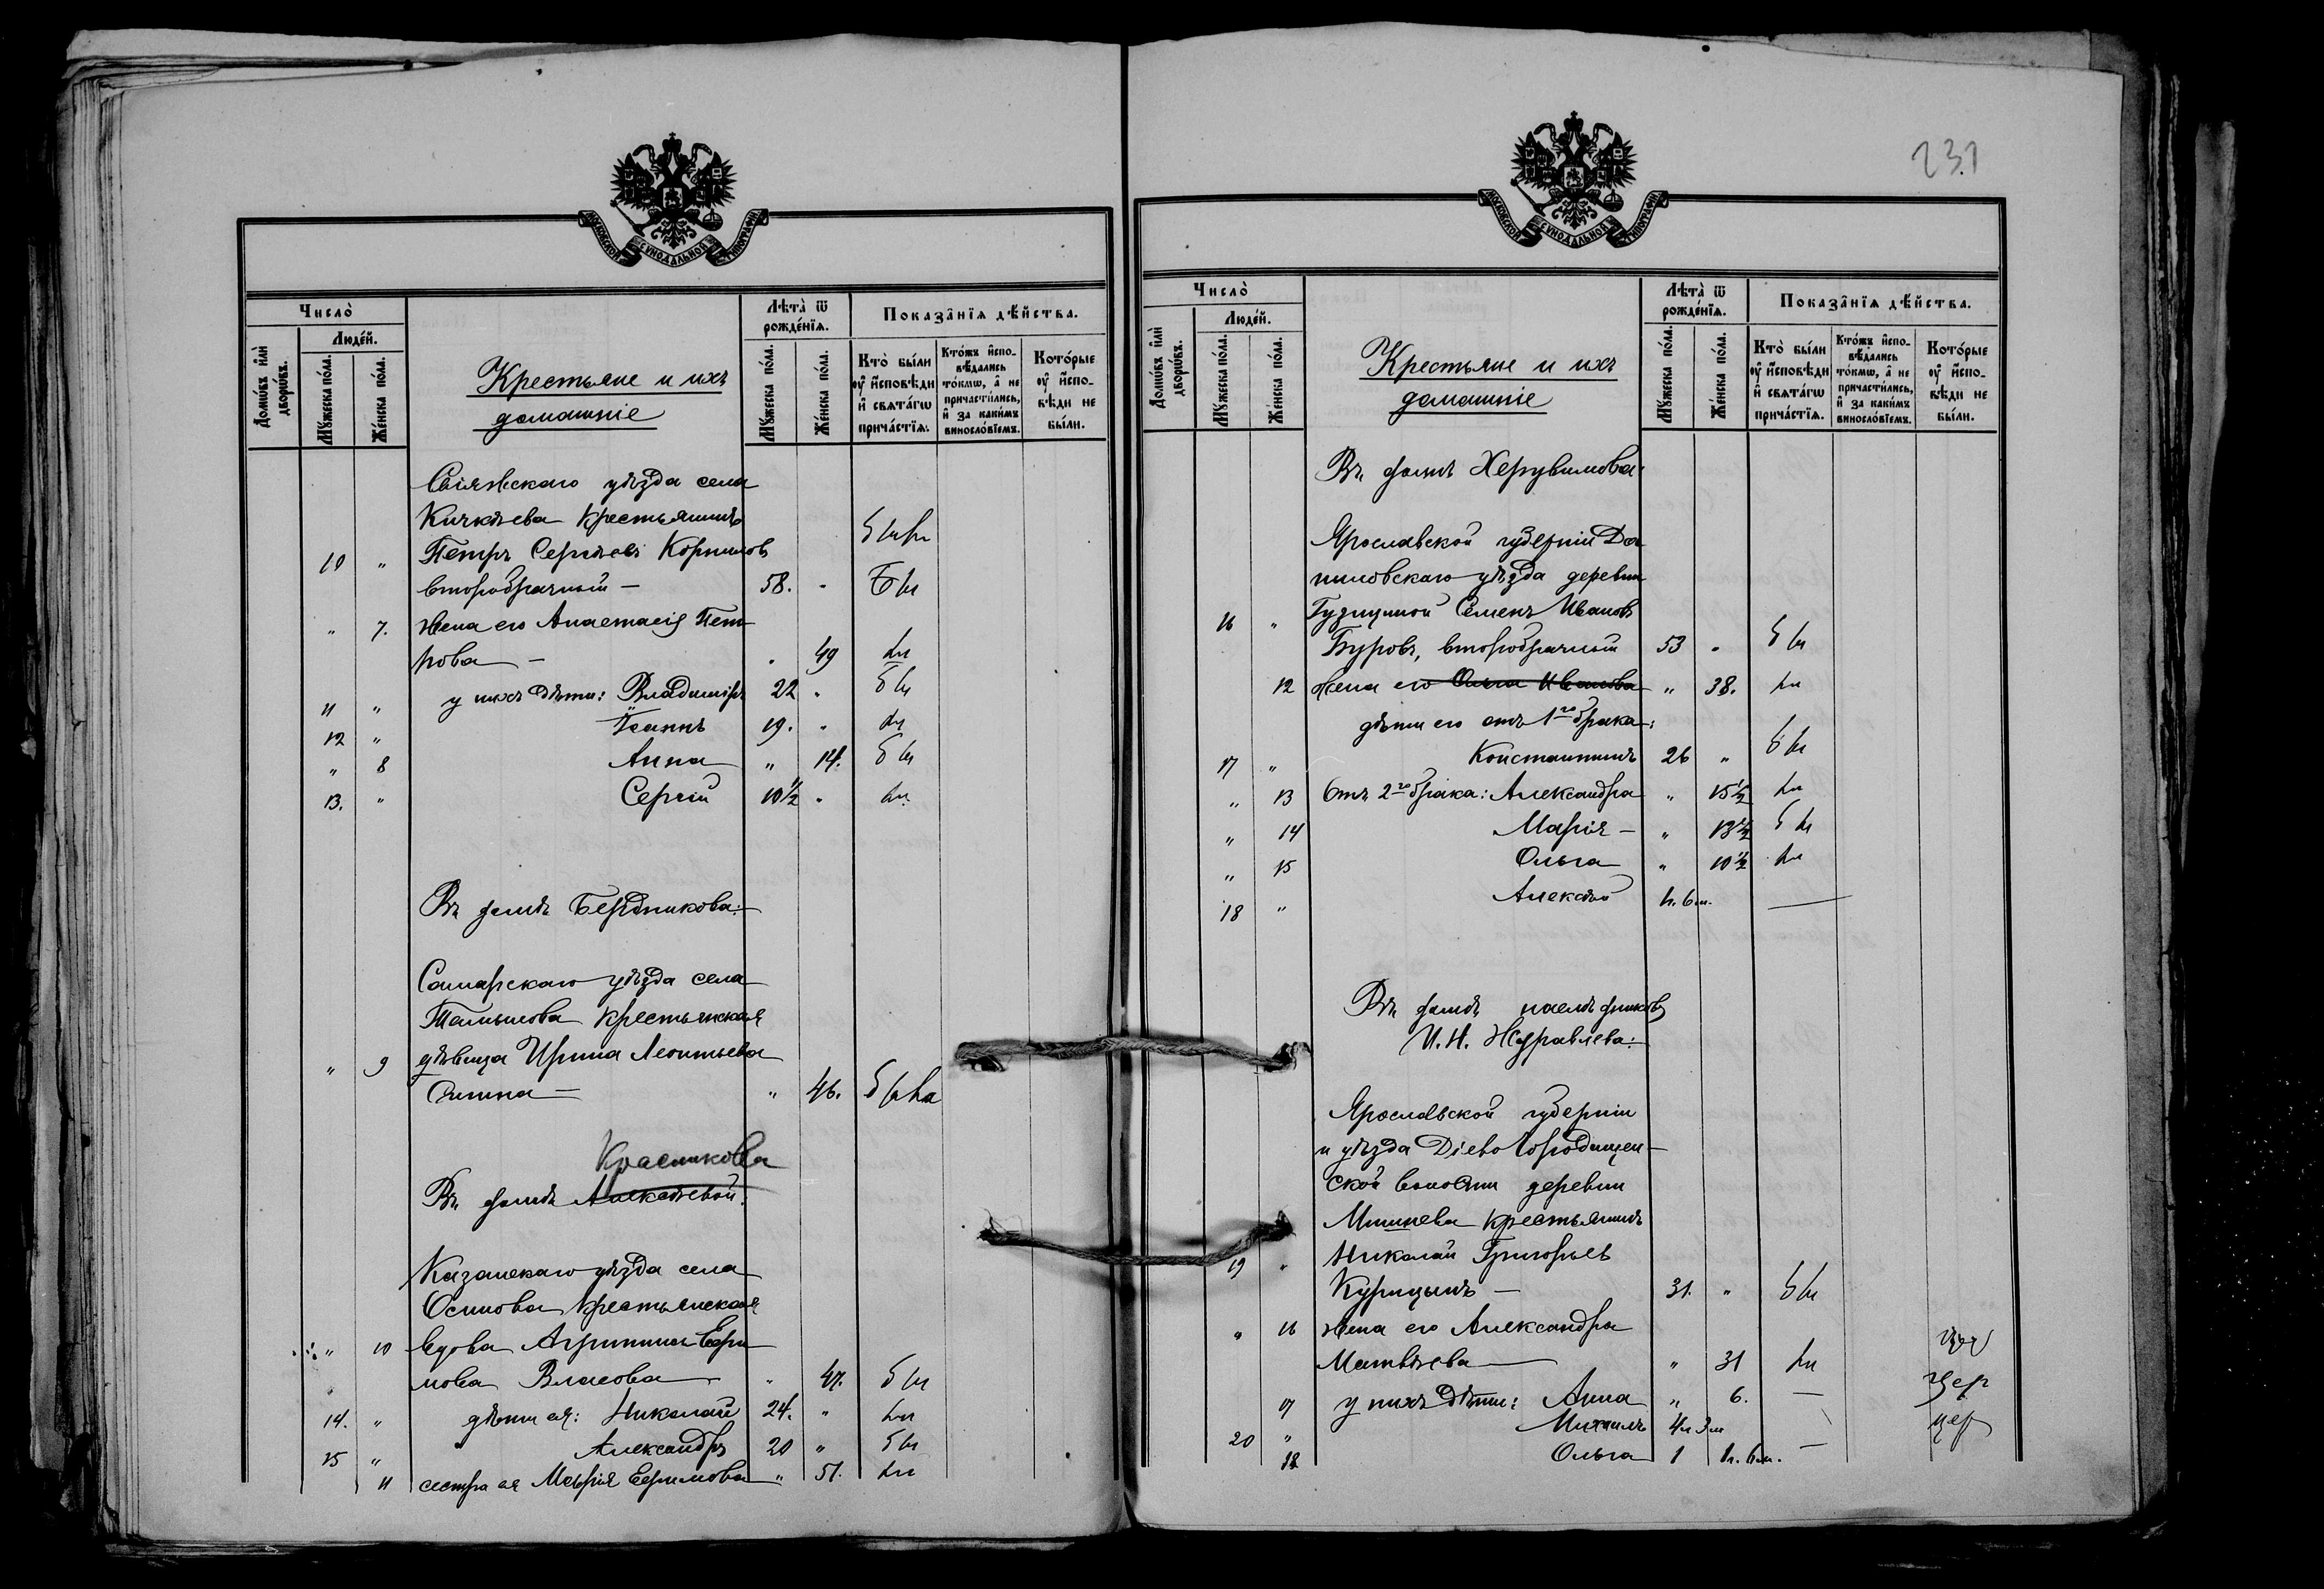 МОСКОВСКОЙ СѴНОДАЛЬНОЙ ТИПОГРАФІИ
Число̀
Домѡ́въ и҆лѝ дворѡ́въ.
Люде́й.
Мꙋ́жеска по́ла.
Же́нска по́ла.
Крестьяне и ихъ
домашніе
Лѣта̀ ѿ рожде́нїѧ.
Мꙋ́жеска по́ла.
Же́нска по́ла.
Показа̑нїѧ дѣ́йства.
Кто̀ бы́ли ᲂу҆ и҆сповѣ́ди и҆ свѧта́гѡ прича́стїѧ.
Кто́жъ и҆спо-
вѣ́дались
то́кмѡ, а҆ не
причасти́лись,
и҆ за каки́мъ
виносло́вїемъ.
Кото́рые ᲂу҆ и҆спо-
вѣ́ди не
бы́ли.
Свіяжскаго уѣзда села
Кичкѣева крестьянинъ
10 " Петръ Сергѣевъ Корнилов
второбрачный — 58. "
" 7. Жена его Анастасія Пет-
рова — " 49
11 " у нихъ дѣти: Владиміръ 22 "
12 " Іоаннъ 19. "
" 8 Анна " 14.
13. " Сергій 10½ "
Въ домѣ Бердникова:
Самарскаго уѣзда села
крестьянская
" 9 дѣвица Ирина Леонтьева
" 46.
Красникова
Въ домѣ Алексѣевой:
Казанскаго уѣзда села
Осинова крестьянская
" 10 вдова Агриппина Ефи
мова Власова " 47.
14. " дѣти ея: Николай 24. "
15 " Александръ 20 "
11 сестра ея Марія Ефимова " 51.
231
МОСКОВСКОЙ СѴНОДАЛЬНОЙ ТИПОГРАФІИ
Число̀
Домѡ́въ и҆лѝ дворѡ́въ.
Люде́й.
Мꙋ́жеска по́ла.
Же́нска по́ла.
Крестьяне и ихъ
домашніе
Лѣта̀ ѿ рожде́нїѧ.
Мꙋ́жеска по́ла.
Же́нска по́ла.
Показа̑нїѧ дѣ́йства.
Кто̀ бы́ли ᲂу҆ и҆сповѣ́ди и҆ свѧта́гѡ прича́стїѧ.
Кто́жъ и҆спо-
вѣ́дались
то́кмѡ, а҆ не
причасти́лись,
и҆ за каки́мъ
виносло́вїемъ.
Кото́рые ᲂу҆ и҆спо-
вѣ́ди не
бы́ли.
Въ домѣ Херувимова:
Ярославской губерніи Да
ниловскаго уѣзда деревни
16 " Семенъ Ивановъ
Буровъ, второбрачный 53 "
12 Жена его Ольга Иванова " 38.
дѣти его отъ 1го брака:
17 " Константинъ 26 "
" 13 Отъ 2го брака: Александра " 15½
" 14 Марія — " 13½
" 15 Ольга " 10½
18 " Алексѣй 1г. 6м. —
Въ домѣ наслѣдниковъ
И. Н. Журавлева:
Ярославской губерніи
и уѣзда Діево Городищен-
ской волости деревни
крестьянинъ
19 " Николай Григорьев
Курицынъ — 31. "
" 16 Жена его Александра
Матвѣева — " 31
17 у нихъ дѣти: Анна " 6. —
20 " Михаилъ 4г 3м
18 Ольга 1 1г. 6м. —